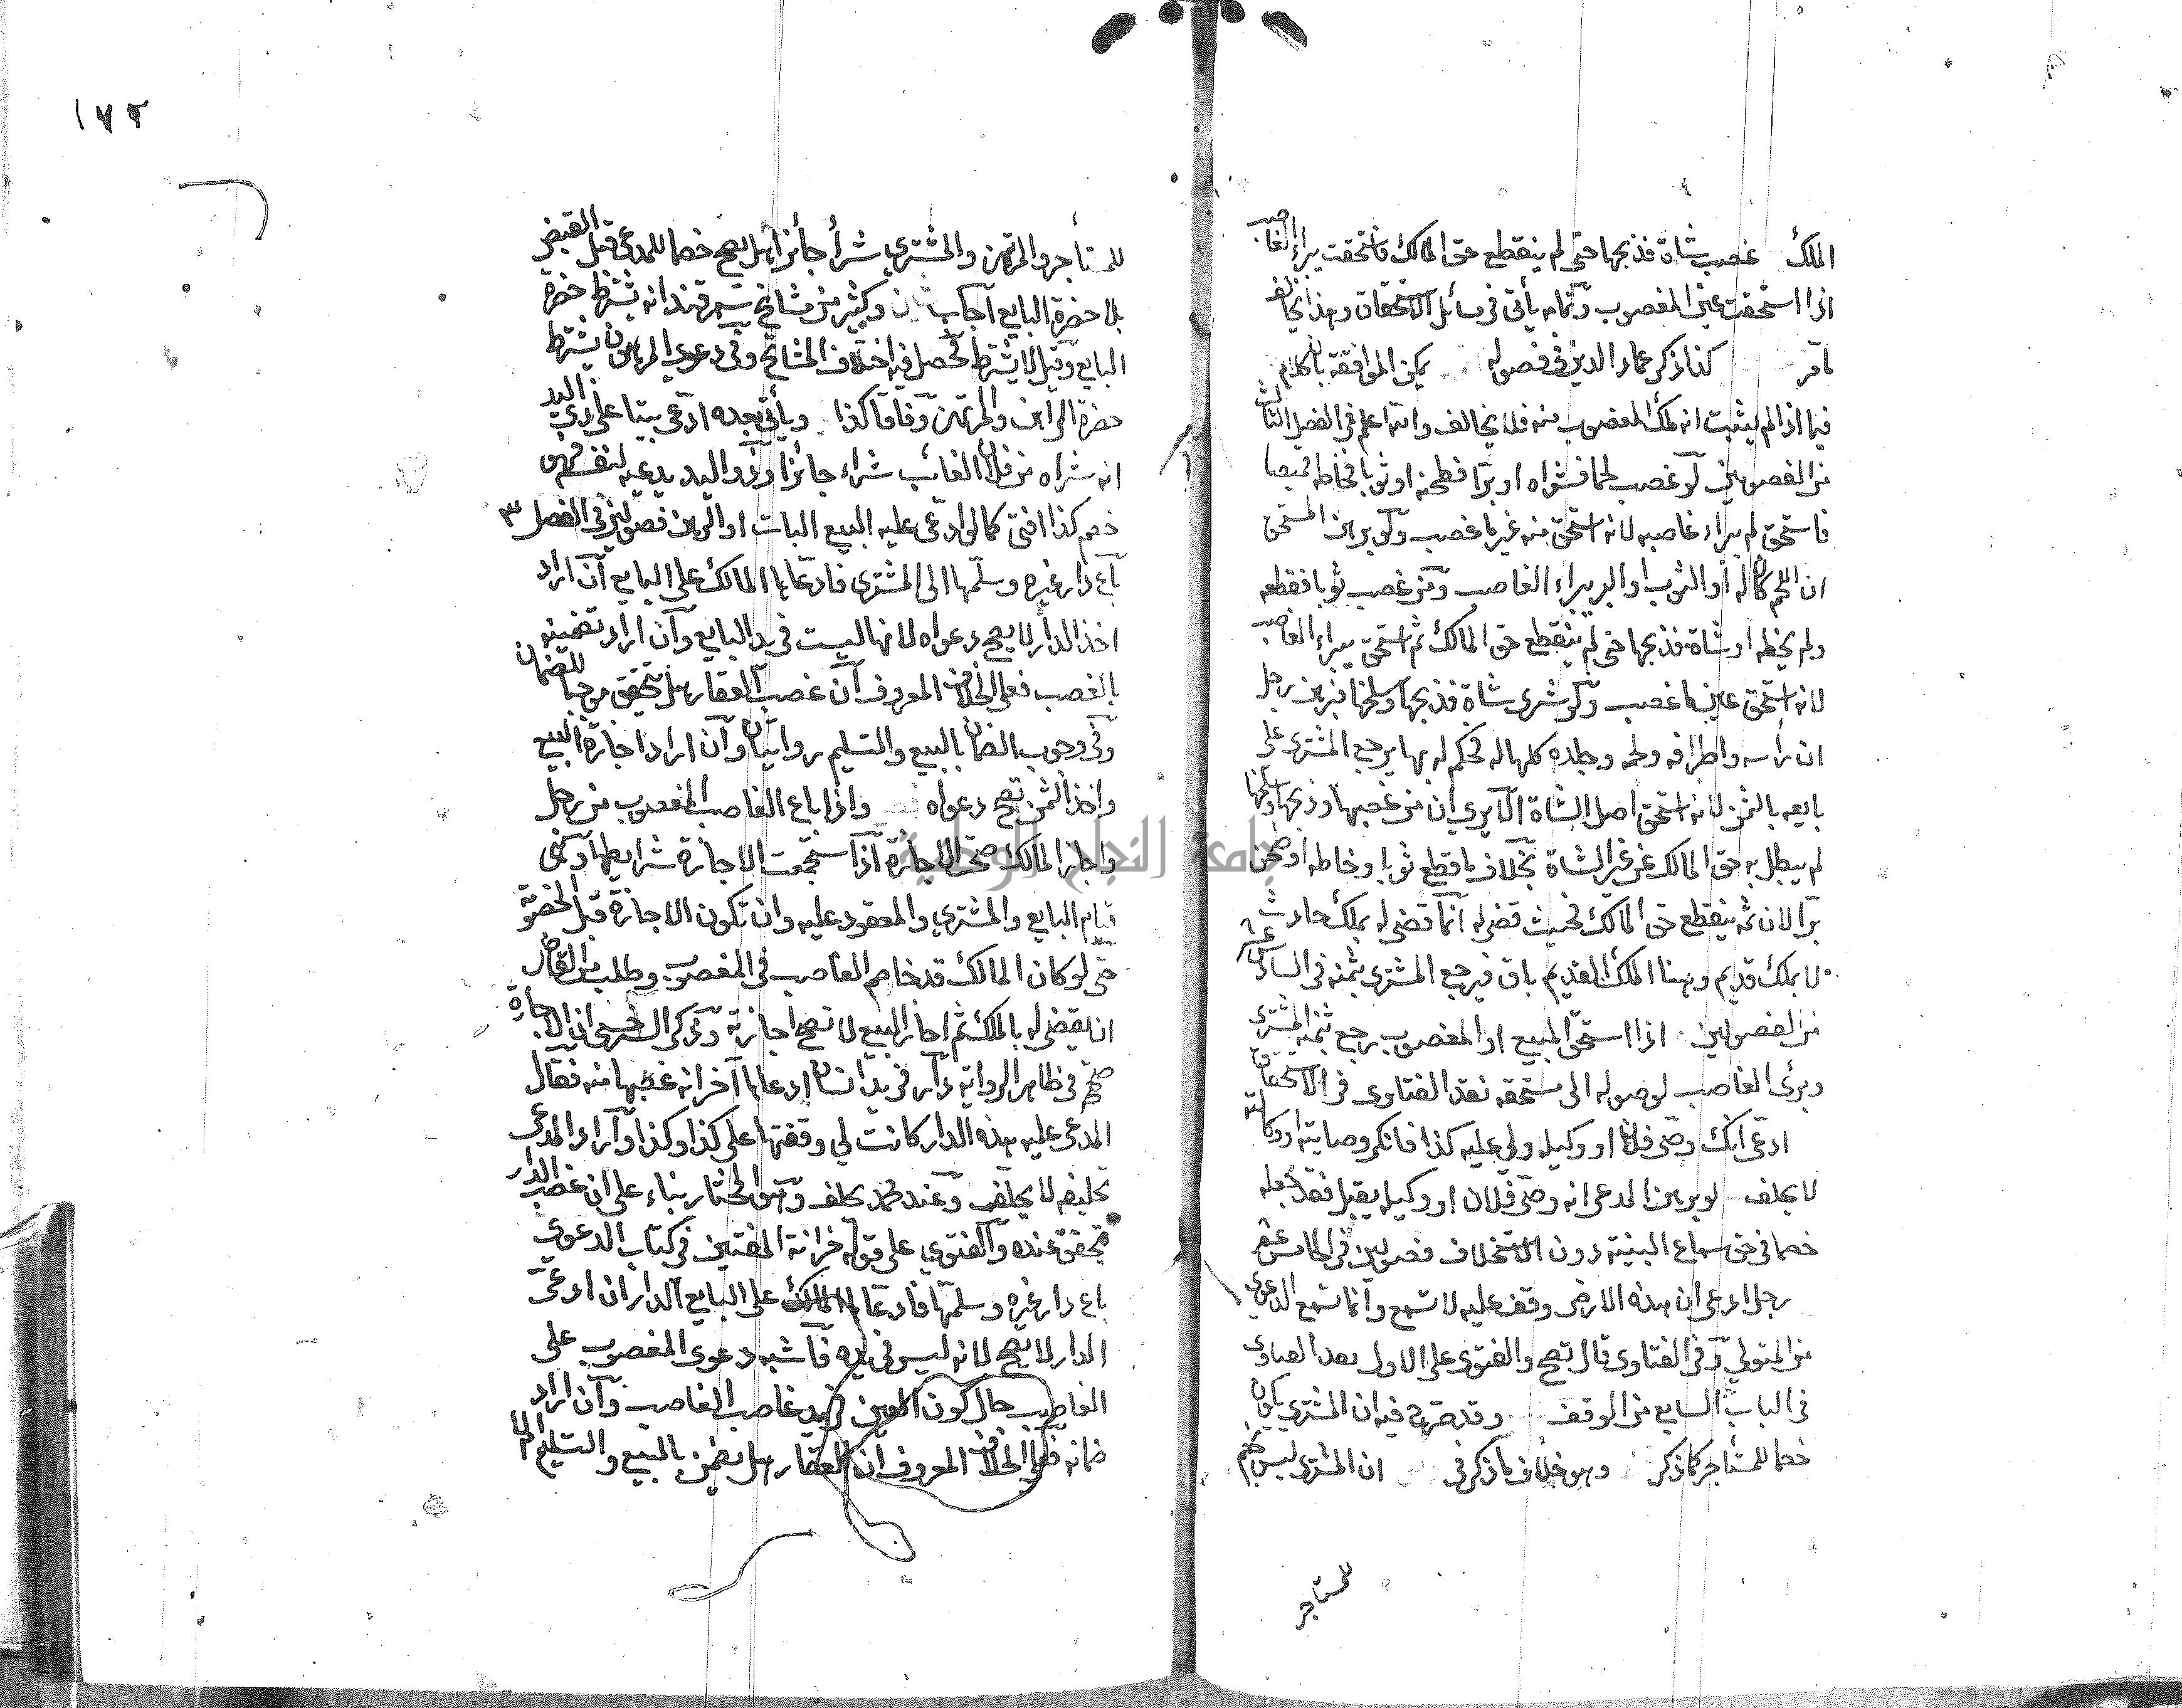 الملك غصب شاة فذبحها حتى لم ينقطع حق المالك فاستحقت يبراء الغاصب
اذا استحقت عين المغصوب وتمامه يأتي في مسائل الاستحقاق وهذا يخالف
مامر كذا ذكر عماد الدين في فصوله يمكن الموافقة بان كلام
فيما اذا لم يثبت انه ملك المغصوب منه فلا يخالف والله اعلم في الفصل الثالث
من الفصولين لو غصب لحما فشواه او برا فطحنه او ثوبا فخاطه قميصا
فاستحق لم يبراء غاصبه لانه استحق منه غير ما غصب ولو برهن المستحق
ان اللحم كان له او الثوب او البر يبراء الغاصب ومن غصب ثوبا فقطعه
ولم يخطه او شاة فذبحها حتى لم ينقطع حق المالك ثم استحق يبراء الغاصب
لانه استحق عين ما غصب ولو شرى شاة فذبحها وسلخها فبرهن رجل
ان رأسه واطرافه ولحمه وجلده كلها له فحكم له بها يرجع المشترى على
بايعه بالثمن لانه استحق اصل الشاة الا يرى ان من غصبها وذبحها وسلخها
لم يبطل به حق المالك عن الشاة بخلاف ما قطع ثوبا وخاطه او طحن
برا لان ثمه ينقطع حق المالك فحيث قضى له انما قضى له بملك حادث
لا بملك قديم وههنا الملك القديم باق فيرجع المشترى بثمنه في السادس عشر
من الفصولين اذا استحق المبيع او المغصوب يرجع بثمنه المشترى
وبرئ الغاصب لوصوله الى مستحقه نقد الفتاوى في الاستحقاق
ادعى انك وصى فلان او وكيله ولي عليه كذا فانكر وصايته او وكالته
لا يحلف لو برهن المدعى انه وصى فلان او وكيله يقبل فقد جعله
خصما في حق سماع البينة دون الاستحلاف فصولين في الخامس عشر
رجل ادعى ان هذه الارض وقف عليه لا تسمع وانما تسمع الدعوى
من المتولي وفي الفتاوى قال تصح والفتوى على الاول نقد الفتاوى
في الباب السابع من الوقف وقد صرح فيه ان المشترى يكون
خصما للمستأجر كما ذكر وهو خلاف ما ذكر في ان المشترى ليس بخصم
للمستاجر
١٧٢
للمستأجر والمرتهن والمشترى شرأ جائزا هل يصح خصما للمدعى قبل القبض
بلا حضرة البايع اجاب وكثير من مشايخ سمرقند انه يشترط حضرة
البايع وقيل لا يشترط فحصل فيه اختلاف المشايخ وفي دعوى الرهن يشترط
حضرة الراهن والمرتهن وفاقا كذا ويأتي بعده ادعى بيتا على ذي اليد
انه شراه من فلان الغائب شراء جائزا وذو اليد يدعيه لنفسه فهو
خصم كذا افتى كما لو ادعى عليه البيع البات او الرهن فصولين في الفصل ٣
باع دار غيره وسلمها الى المشترى فادعاها المالك على البايع ان اراد
اخذ الدار لا يصح دعواه لانها ليست في يد البايع وان اراد تضمينه
بالغصب فعلى الخلاف المعروف ان غصب العقار هل يتحقق موجبا للضمان
وفي وجوب الضمان بالبيع والتسليم روايتان وان اراد اجازة البيع
واخذ الثمن تصح دعواه واذا باع الغاصب المغصوب من رجل
واجاز المالك صحت الاجازة اذا استجمعت الاجازة شرايطها وهي
قيام البايع والمشترى والمعقود عليه وان تكون الاجازة قبل الخصومة
حتى لو كان المالك قد خاصم الغاصب في المغصوب وطلب من القاضى
ان يقضى له بالملك ثم اجاز البيع لا تصح اجازته وذكر السرخسى ان الاجازة
صحيح في ظاهر الرواية دار في يد انسان ادعاها آخر انه غصبها منه فقال
المدعى عليه هذه الدار كانت لي وقفتها على كذا وكذا واراد المدعى
تحليفه لا يحلف وعند محمد يحلف وهو المختار بناء على ان غصب الدار
متحقق عنده والفتوى على قوله خزانة المفتين في كتاب الدعوى
باع دار غيره وسلمها فادعاها المالك على البايع الدار ان ادعى
الدار لا يصح لانه ليس في يده فاشبه دعوى المغصوب على
الغاصب حال كون العين في يد غاصب الغاصب وان اراد
ضمانه فعلى الخلاف المعروف ان العقار هل يضمن بالبيع والتسليم
جامعة النجاح الوطنية